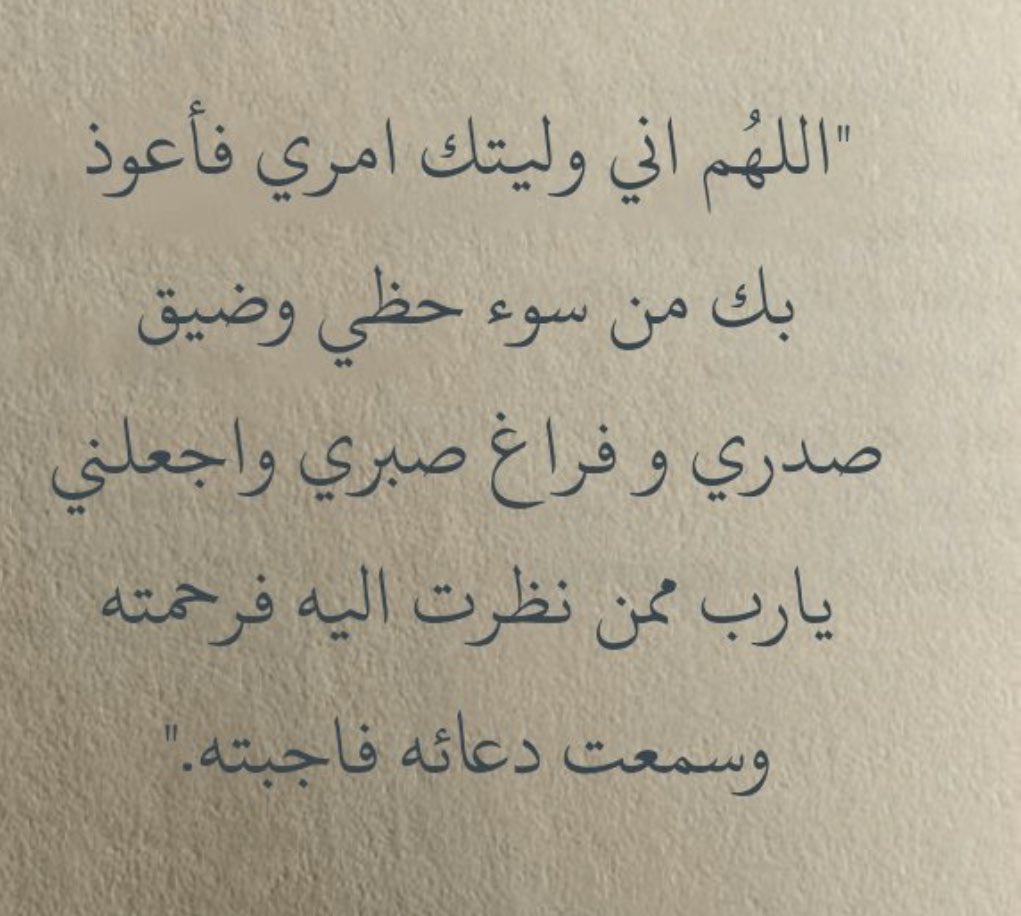 "اللهُم اني وليتك امري فأعوذ
بك من سوء حظي وضيق
صدري و فراغ صبري واجعلني
يارب ممن نظرت اليه فرحمته
وسمعت دعائه فاجبته."